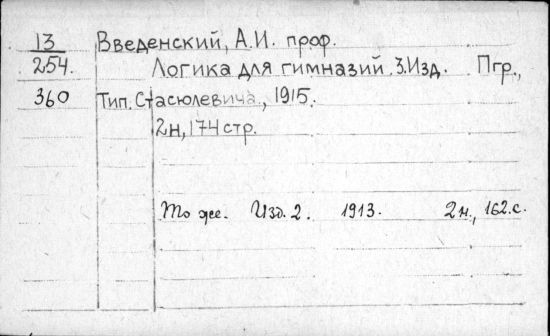 13 Введенский, А.И. проф.
254. Логика для гимназий. 3.Изд. Пгр.,
360 Тип. Стасюлевича., 1915.
2н, 174 стр.
То же. Изд. 2. 1913. 2н., 162.с.